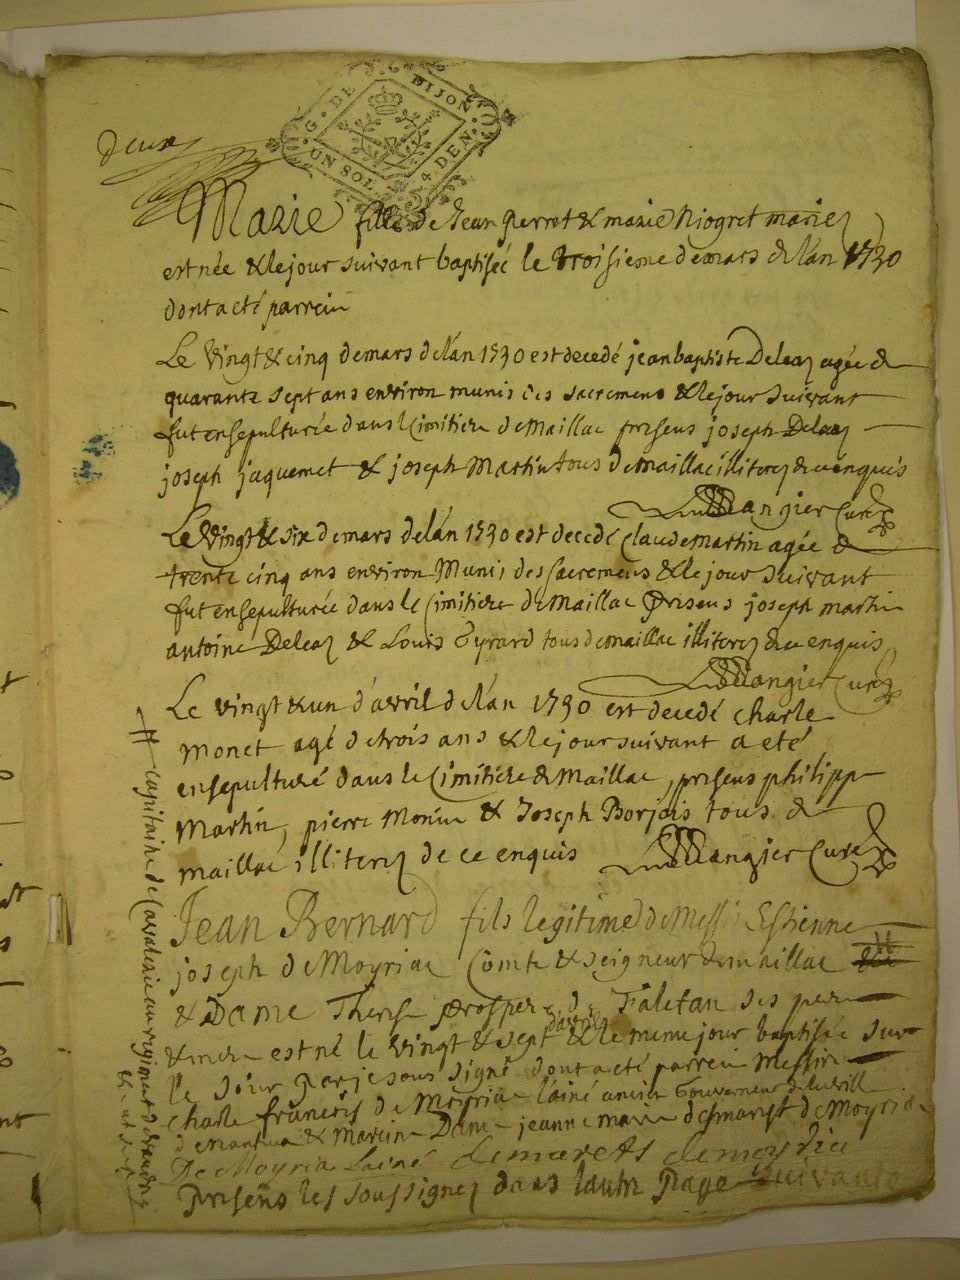 G. DE DIJON
UN SOL 4 DEN
deux
Marie fille de Jean perret & marie Niogret mariez
est née & le jour suivant baptisée le troisieme de mars de l'an 1730
dont a eté parrein
Le vingt & cinq de mars de l'an 1730 est decedé jean baptiste Deleaz agée de
quarante sept ans environ munis des sacremens & le jour suivant
fut ensepulturée dans le cimitiere de Maillac presens joseph Deleaz
joseph jaquemet & joseph Martin tous de maillac illiterez de ce enquis
Mangier Curé
Le vingt & six de mars de l'an 1730 est decedé claude martin agée de
trente cinq ans environ Munis des sacremens & le jour suivant
fut ensepulturée dans le cimitiere de Maillac presens joseph martin
antoine Deleaz & Louis Eyrard tous de maillac illiterez de ce enquis
Mangier Curé
Le vingt & un d'avril de l'an 1730 est decedé charle
Monet agé de trois ans & le jour suivant a eté
ensepulturé dans le Cimitiere de Maillac, presens philippe
Martin, pierre Monin & Joseph Borjais tous de
maillac illiterez de ce enquis Mangier Curé
Jean Bernard fils legitime de Messire Estienne
joseph de Moyriac Comte & seigneur de maillac
& Dame Therese prosper de Faletan ses pere
& mere est né le vingt & sept d'avril & le meme jour baptisée sur
le soir par je sous signé dont a eté parrein Messire
charle francois de Moyria l'ainé ancien Gouverneur de la ville
de mantua & Mareine Dame jeanne marie desmarest de Moyria
De Moyria Lainé demarets demoyria
presens les soussignez dans lautre page suivante
capitaine de Cavalerie au regiment